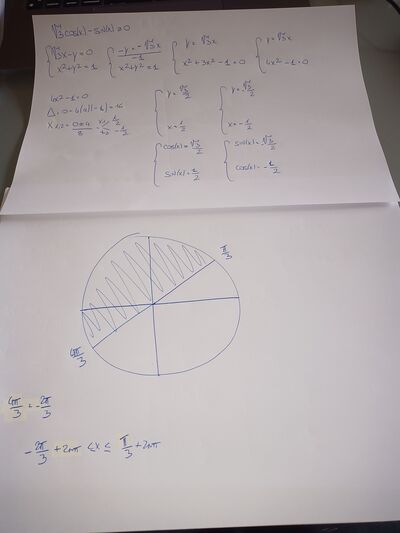 √3 cos(x) - sin(x) ≥ 0
{ √3x - y = 0 { -y = -√3x / -1 { y = √3x { y = √3x
{ x² + y² = 1 { x² + y² = 1 { x² + 3x² - 1 = 0 { 4x² - 1 = 0
4x² - 1 = 0
Δ = 0 + 4(4)(-1) = 16
x x1,2 = 0±4 / 8 = x1 = 1/2
x2 = -1/2
{ y = √3/2 { y = -√3/2
{ x = 1/2 { x = -1/2
{ cos(x) = √3/2 { sin(x) = √3/2
{ sin(x) = 1/2 { cos(x) = -1/2
π/3
4π/3
4π/3 = -2π/3
-2π/3 + 2nπ ≤ x ≤ π/3 + 2nπ